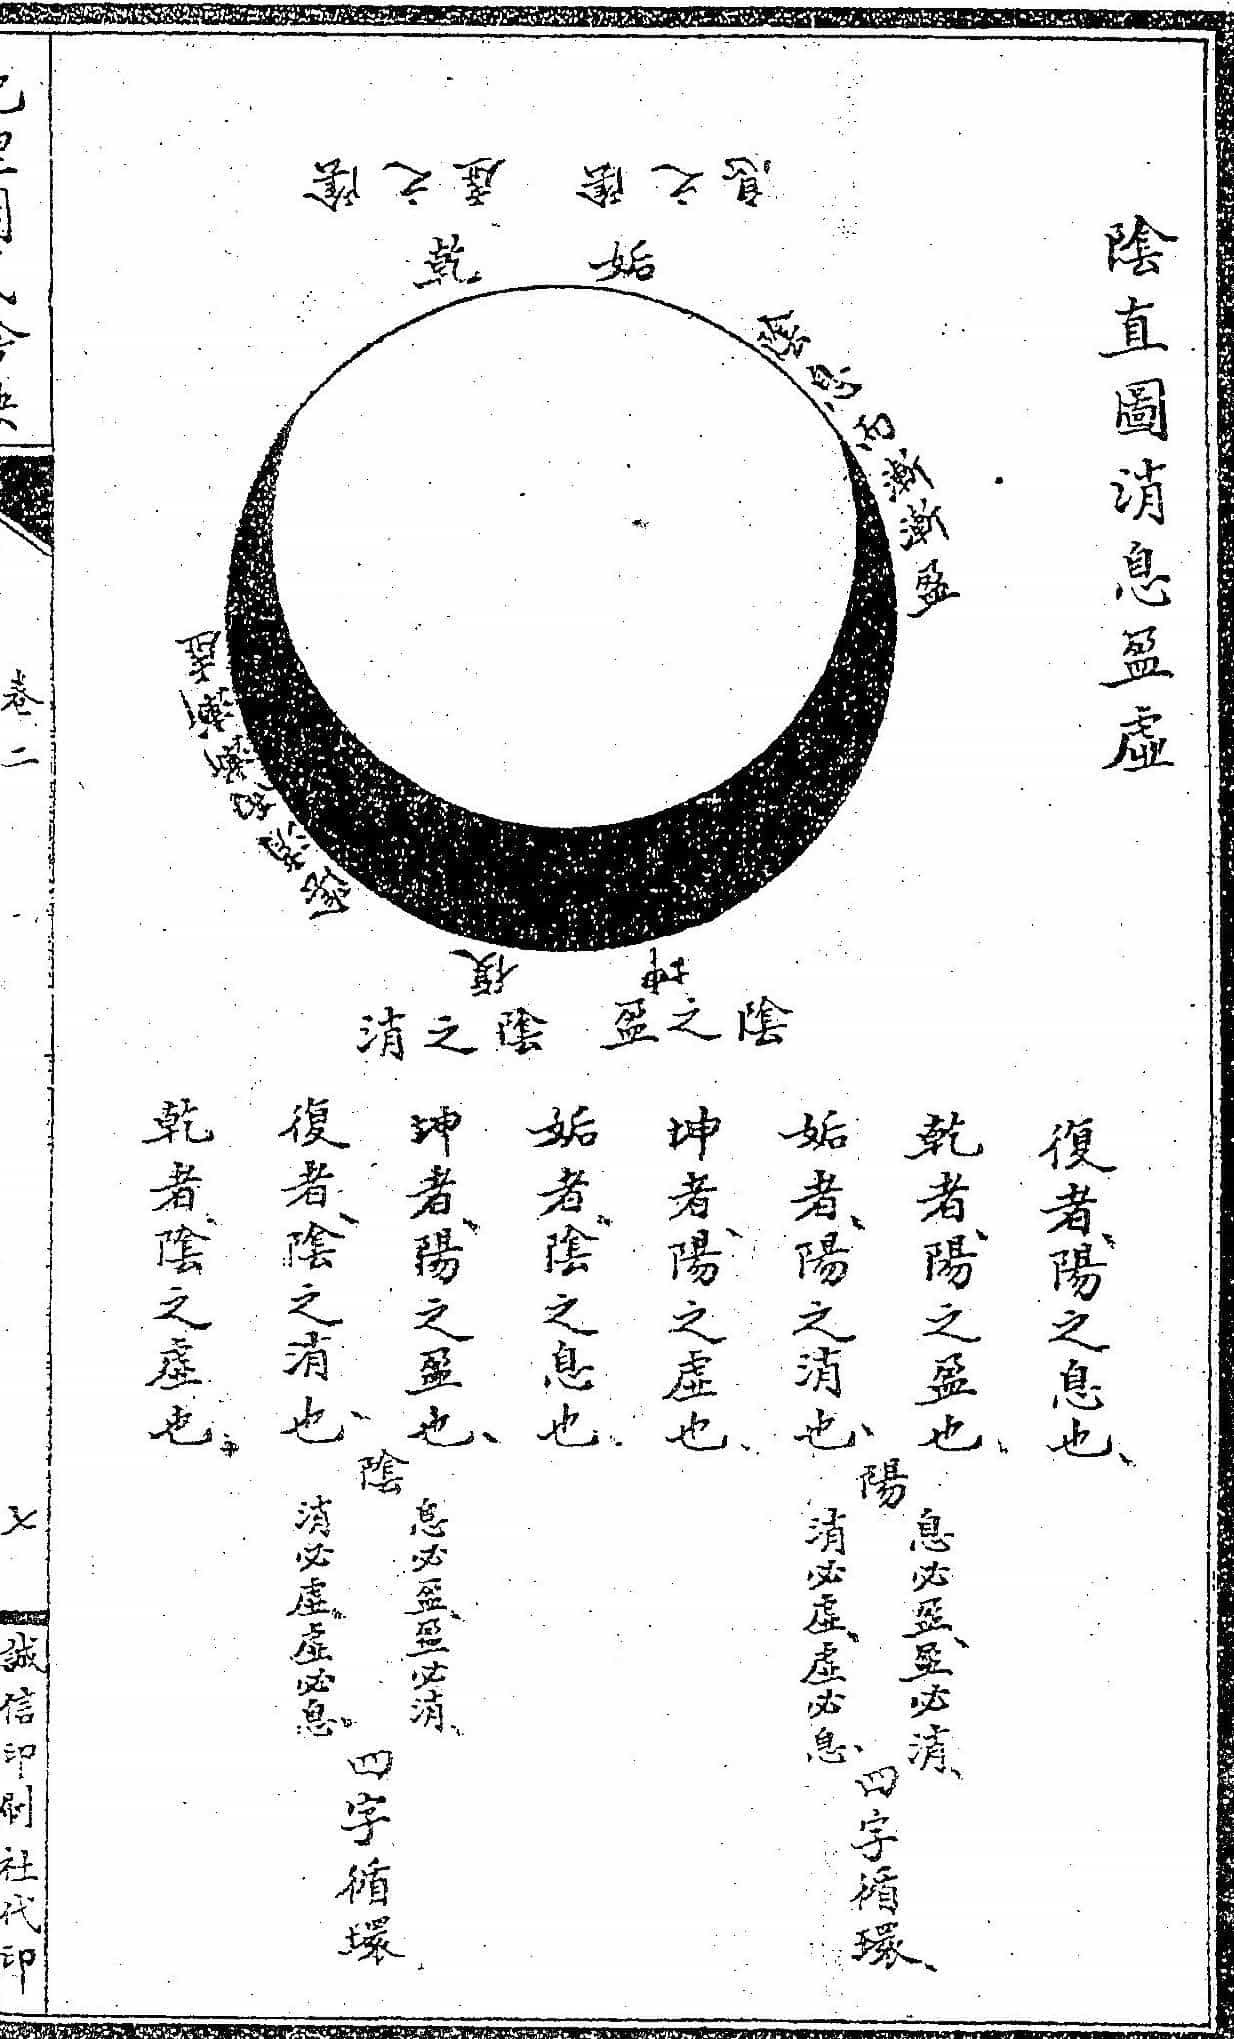 陰直圖消息盈虛
陰之息
陰之虛
姤
乾
陰息而漸漸盈
陰消而漸漸虛
坤
復
陰之盈
陰之消
復者、陽之息也、
乾者、陽之盈也、
姤者、陽之消也、
坤者、陽之虛也、
陽
息必盈、盈必消、
消必虛、虛必息、
四字循環、
姤者、陰之息也、
坤者、陽之盈也、
復者、陰之消也、
乾者、陰之虛也、
陰
息必盈、盈必消、
消必虛、虛必息、
四字循環
卷二
七
誠信印刷社代印